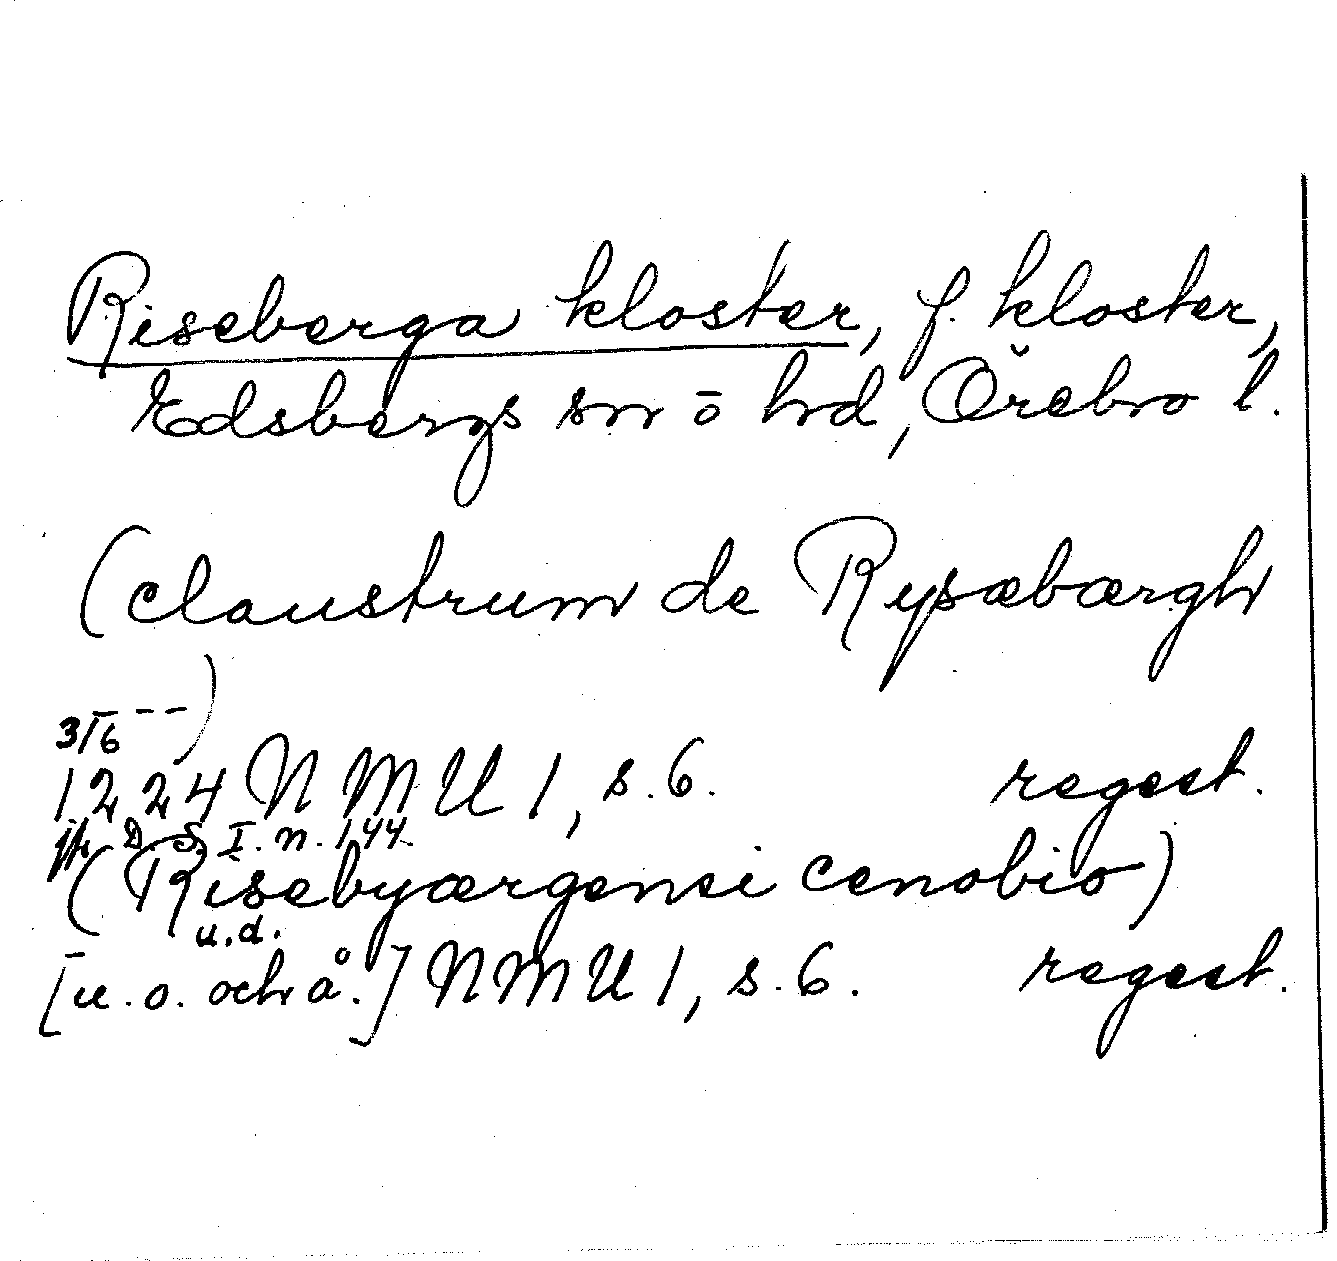 Riseberga kloster, f. kloster,
Edsbergs sn ō hd, Örebro l.
(claustrum de Rysæbærgh
---)
3/6
1224 NMU 1, s. 6. regest.
jfr D. S. I. n. 144.
(Risebyærgensi cenobio)
u.d.
[u. o. och å.] NMU 1, s. 6. regest.